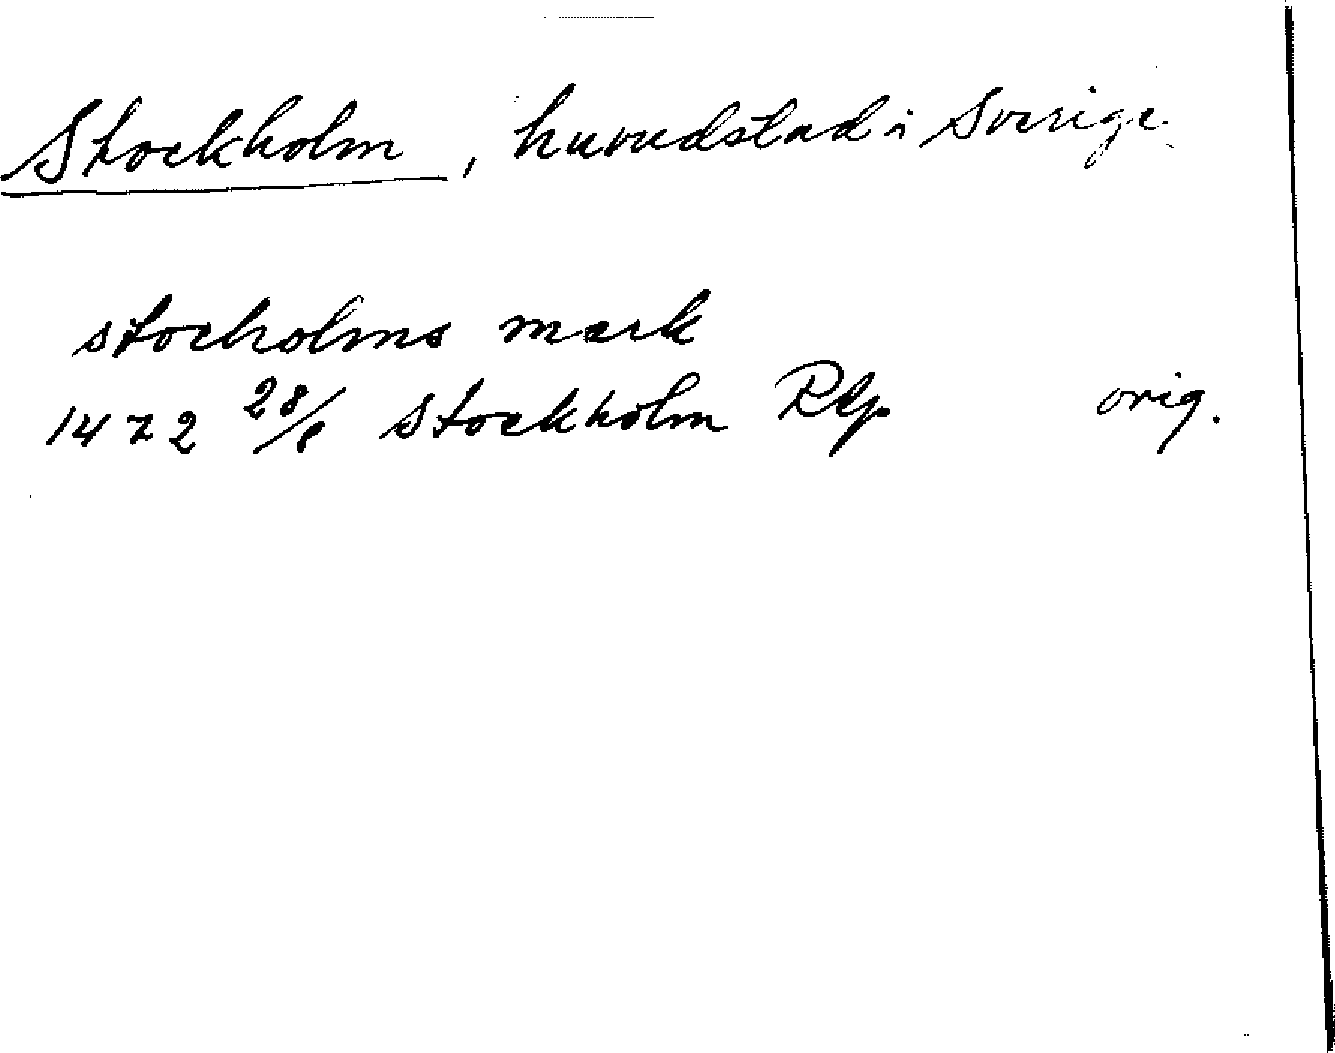 Stockholm, huvudstad i Sverige.
stocholms mark
1472 28/8 Stockholm Rep orig.